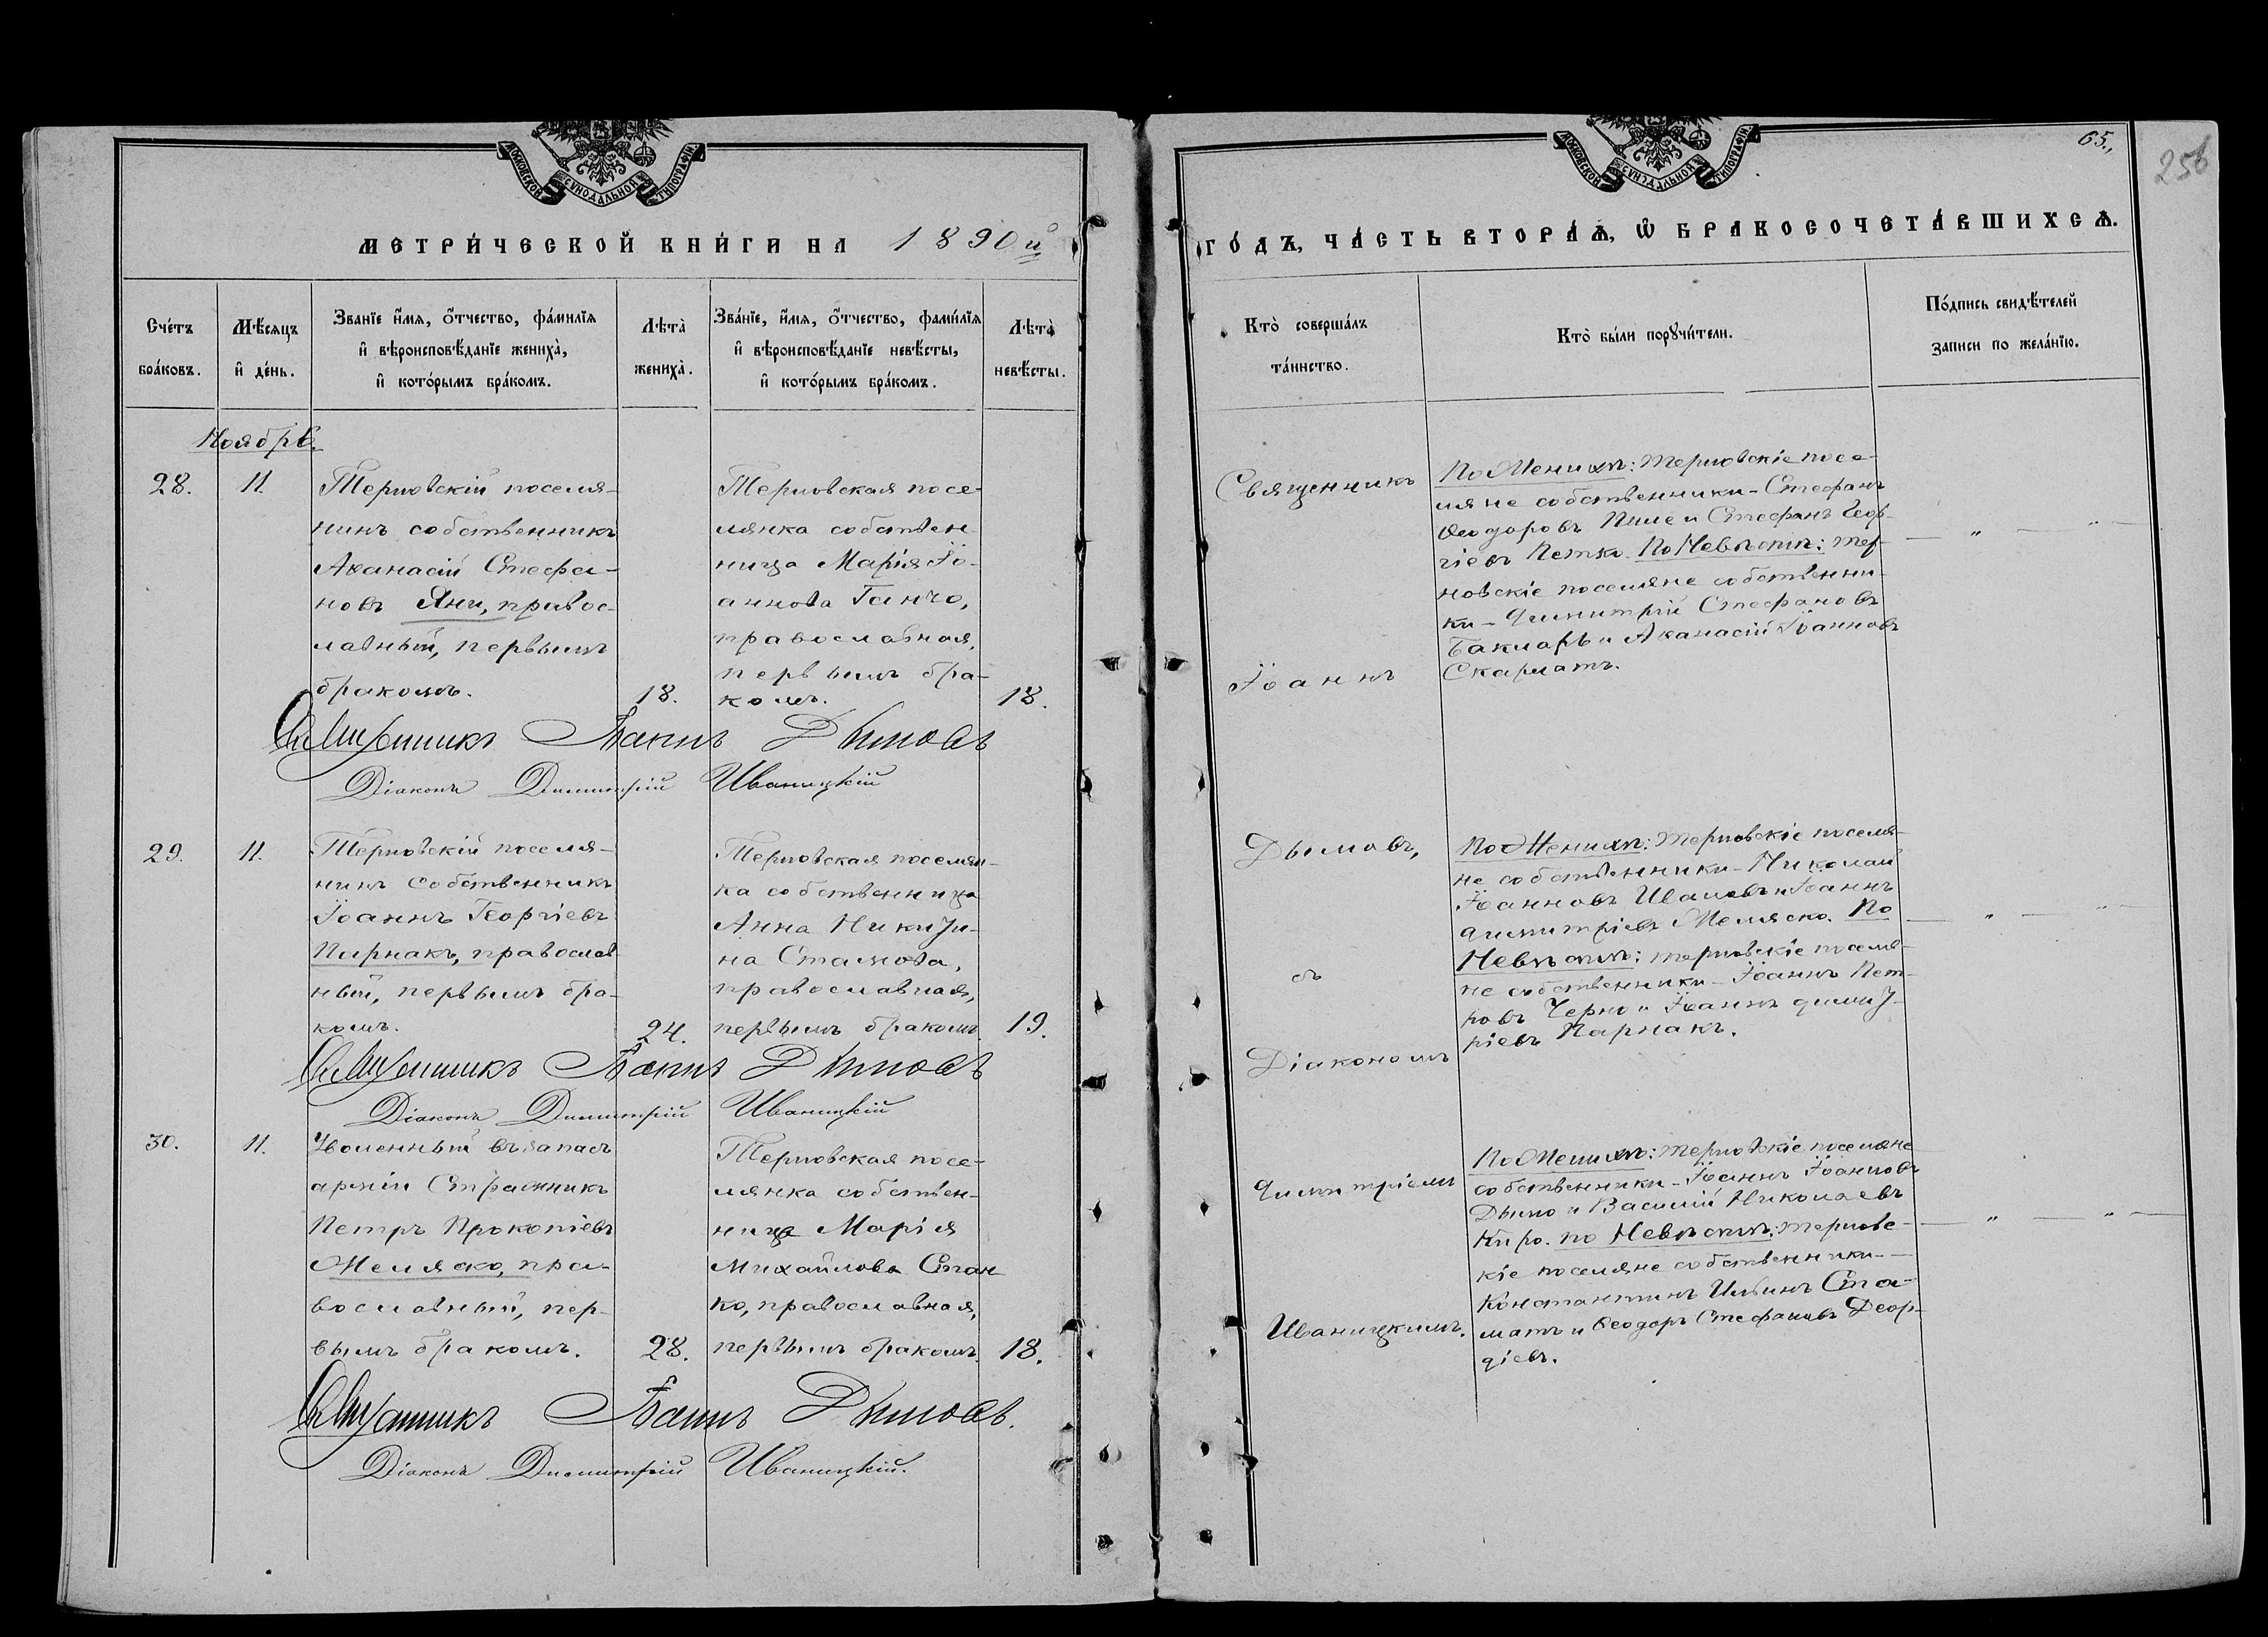 МОСКОВСКОЙ СѴНОДАЛЬНОЙ ТИПОГРАФІИ
МЕТРИ́ЧЕСКОЙ КНИ́ГИ НА 1890й
Сче́тъ бра́ковъ.
Мѣ́сяцъ и҆ де́нь.
Зва́нїе и҆́мя, ѻ҆́тчество, фами́лїя
и҆ вѣроисповѣ́данїе жениха̀,
и҆ кото́рымъ бра́комъ.
Лѣта̀ жениха̀.
Зва́нїе, и҆́мя, ѻ҆́тчество, фами́лїя
и҆ вѣроисповѣ́данїе невѣ́сты,
и҆ кото́рымъ бра́комъ.
Лѣта̀ невѣ́сты.
Ноябрь.
28.
11.
Терновскій поселя-
нинъ собственникъ
Аѳанасій Стефа-
новъ Яни, правос-
лавный, первымъ
бракомъ.
18.
Терновская посе-
лянка собствен-
ница Марія Іо-
аннова Ганчо,
православная,
первымъ бра-
комъ.
18.
Священникъ Іоаннъ Дымовъ
Діаконъ Димитрій Иваницкій
29.
11.
Терновскій поселя-
нинъ собственникъ
Іоаннъ Георгіевъ
Парнакъ, православ
ный, первымъ бра-
комъ.
24.
Терновская поселян-
ка собственница
Анна Никити-
на Стамова,
православная,
первымъ бракомъ
19.
Священникъ Іоаннъ Дымовъ
Діаконъ Димитрій Иваницкій
30.
11.
Уволенный въ запасъ
арміи Стражникъ
Петръ Прокопіевъ
Желяско, пра-
вославный, пер-
вымъ бракомъ.
28.
Терновская посе-
лянка собствен-
ница Марія
Михайлова Стан
ко, православная,
первымъ бракомъ.
18.
Священникъ Іоаннъ Дымовъ.
Діаконъ Димитрій Иваницкій.
65.,
256
МОСКОВСКОЙ СѴНОДАЛЬНОЙ ТИПОГРАФІИ
ГО́ДЪ, ЧА́СТЬ ВТОРА́Ѧ, Ѡ҆ БРАКОСОЧЕТА́ВШИХСѦ.
Кто̀ соверша́лъ
та́инство.
Кто̀ бы́ли порꙋчи́тели.
По́дпись свидѣ́телей
записи по жела́нїю.
Священникъ
Іоаннъ
Дымовъ,
съ
Діакономъ
Димитріемъ
Иваницкимъ.
По Женихѣ: Терновскіе посе-
ляне собственники - Стефанъ
Ѳеодоровъ Пиле и Стефанъ Геор-
гіевъ Петко. По Невѣстѣ: тер-
новскіе поселяне собственни-
ки - Димитрій Стефановъ
Бакларъ и Аѳанасій Іоанновъ
Скарлатъ.
По Женихѣ: Терновскіе поселя-
не собственники - Николай
Іоанновъ Ивановъ и Іоаннъ
Димитріевъ Желяско. По
Невѣстѣ: терновскіе поселя-
не собственники - Іоаннъ Пет-
ровъ Черно и Іоаннъ Димит-
ріевъ Парнакъ.
По Женихѣ: Терновскіе поселяне
собственники - Іоаннъ Іоанновъ
Дымо и Василій Николаевъ
Киро. по Невѣстѣ: терновс-
кіе поселяне собственники -
Константинъ Ильинъ Ста-
матъ и Ѳеодоръ Стефановъ Деор-
діевъ.